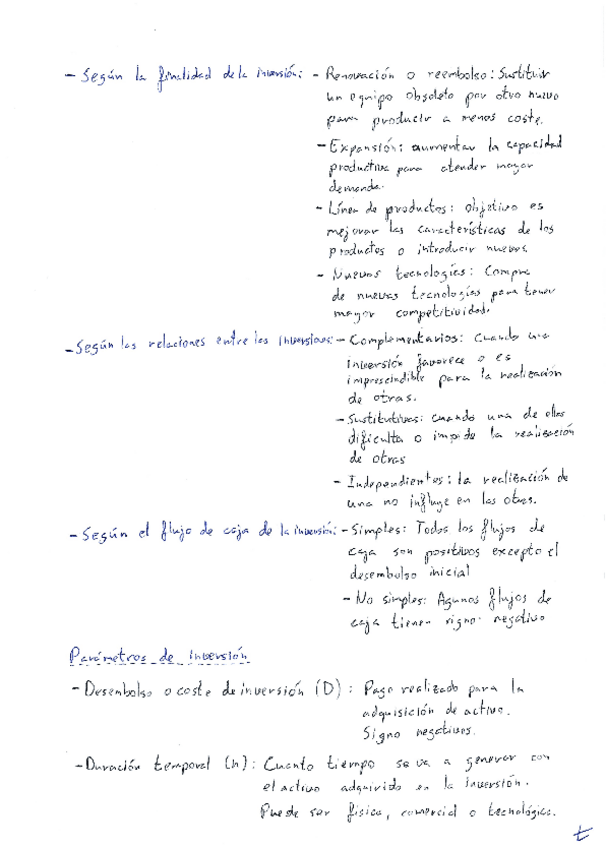 - Según la finalidad de la inversión: - Renovación o reembolso: Sustituir
un equipo obsoleto por otro nuevo
para producir a menos coste.
- Expansión: aumentar la capacidad
productiva para atender mayor
demanda.
- Línea de productos: objetivo es
mejorar las características de los
productos o introducir nuevos.
- Nuevas tecnologías: Compra
de nuevas tecnologías para tener
mayor competitividad.
- Según las relaciones entre las inversiones: - Complementarios: Cuando una
inversión favorece o es
imprescindible para la realización
de otras.
- Sustitutivas: cuando una de ellas
dificulta o impide la realización
de otras
- Independientes: la realización de
una no influye en las otras.
- Según el flujo de caja de la inversión: - Simples: Todos los flujos de
caja son positivos excepto el
desembolso inicial
- No simples: Agunos flujos de
caja tienen signo negativo
Parámetros de inversión
- Desembolso o coste de inversión (D): Pago realizado para la
adquisición de activo.
Signo negativos.
- Duración temporal (n): Cuanto tiempo se va a generar con
el activo adquirido en la inversión.
Puede ser física, comercial o tecnológica.